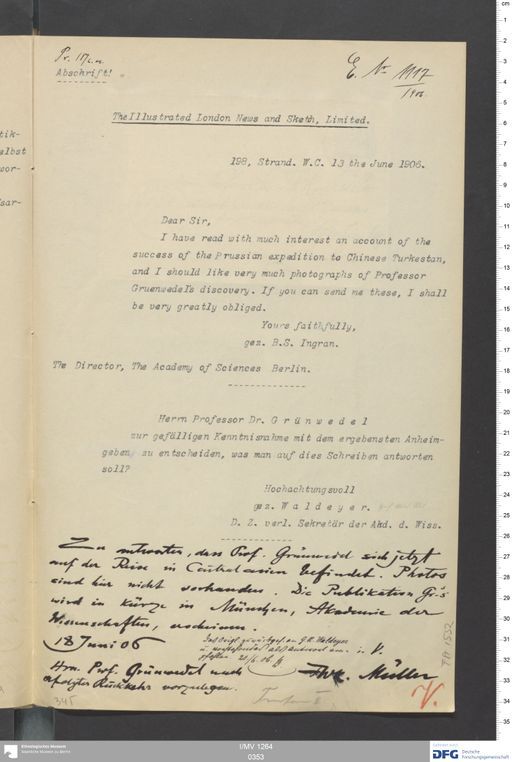 Abschrift!
E. Nr 1117
1906
The Illustrated London News and Sketh, Limited.
198, Strand. W.C. 13 the June 1906.
Dear Sir,
I have read with much interest an account of the
success of the Prussian expedition to Chinese Turkestan,
and I should like very much photographs of Professor
Gruenwedel's discovery. If you can send me these, I shall
be very greatly obliged.
Yours faithfully,
gez. B.S. Ingran.
The Director, The Academy of Sciences Berlin.
Herrn Professor Dr. Grünwedel
zur gefälligen Kenntnisnahme mit dem ergebensten Anheim-
geben zu entscheiden, was man auf dies Schreiben antworten
soll?
Hochachtungsvoll
gez. Waldeyer.
D. Z. verl. Sekretär der Akd. d. Wiss.
Zu antworten, dass Prof. Grünwedel sich jetzt
auf der Reise in Centralasien befindet. Photos
sind hier nicht vorhanden. Die Publikation Gr's
wird in kürze in München, Akademie der
Wissenschaften, erscheinen.
18 Juni 06
i. V.
Hrn. Prof. Grünwedel nach
erfolgter Rückkehr vorzulegen.
Müller
345
TA 1532
tik-
elbst
wor-
sar-
Ethnologisches Museum
Staatliche Museen zu Berlin
I/MV 1264
0353
Gefördert durch
DFG Deutsche
Forschungsgemeinschaft
cm
1
2
3
4
5
6
7
8
9
10
11
12
13
14
15
16
17
18
19
20
21
22
23
24
25
26
27
28
29
30
31
32
33
34
35